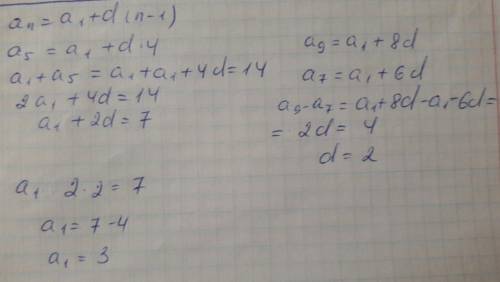 aₙ = a₁ + d (n-1)
a₅ = a₁ + d · 4
a₁ + a₅ = a₁ + a₁ + 4d = 14
2a₁ + 4d = 14
a₁ + 2d = 7
a₉ = a₁ + 8d
a₇ = a₁ + 6d
a₉ - a₇ = a₁ + 8d - a₁ - 6d =
= 2d = 4
d = 2
a₁ 2 · 2 = 7
a₁ = 7 - 4
a₁ = 3